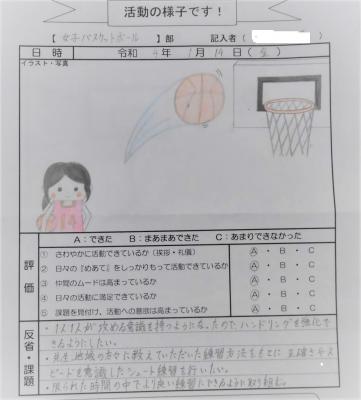 活動の様子です！
【 女子バスケットボール 】部 記入者（ ）
日 時 令和 4 年 1 月 14 日（ 金 ）
イラスト・写真
14
A：できた B：まあまあできた C：あまりできなかった
評価
① さわやかに活動できているか（挨拶・礼儀） A・B・C
② 日々の『めあて』をしっかりもって活動できているか A・B・C
③ 仲間のムードは高まっているか A・B・C
④ 日々の活動に満足できているか A・B・C
⑤ 課題を見付け、活動への意欲は高まっているか A・B・C
反省・課題
・1人1人が攻める意識を持つようになったので、ハンドリングを強化で
きるようにしたい。
・先生、地域の方々に教えていただいた練習方法をもとに正確さやス
ピードを意識したシュート練習を行いたい。
・限られた時間の中でより良い練習にできるように取り組む。